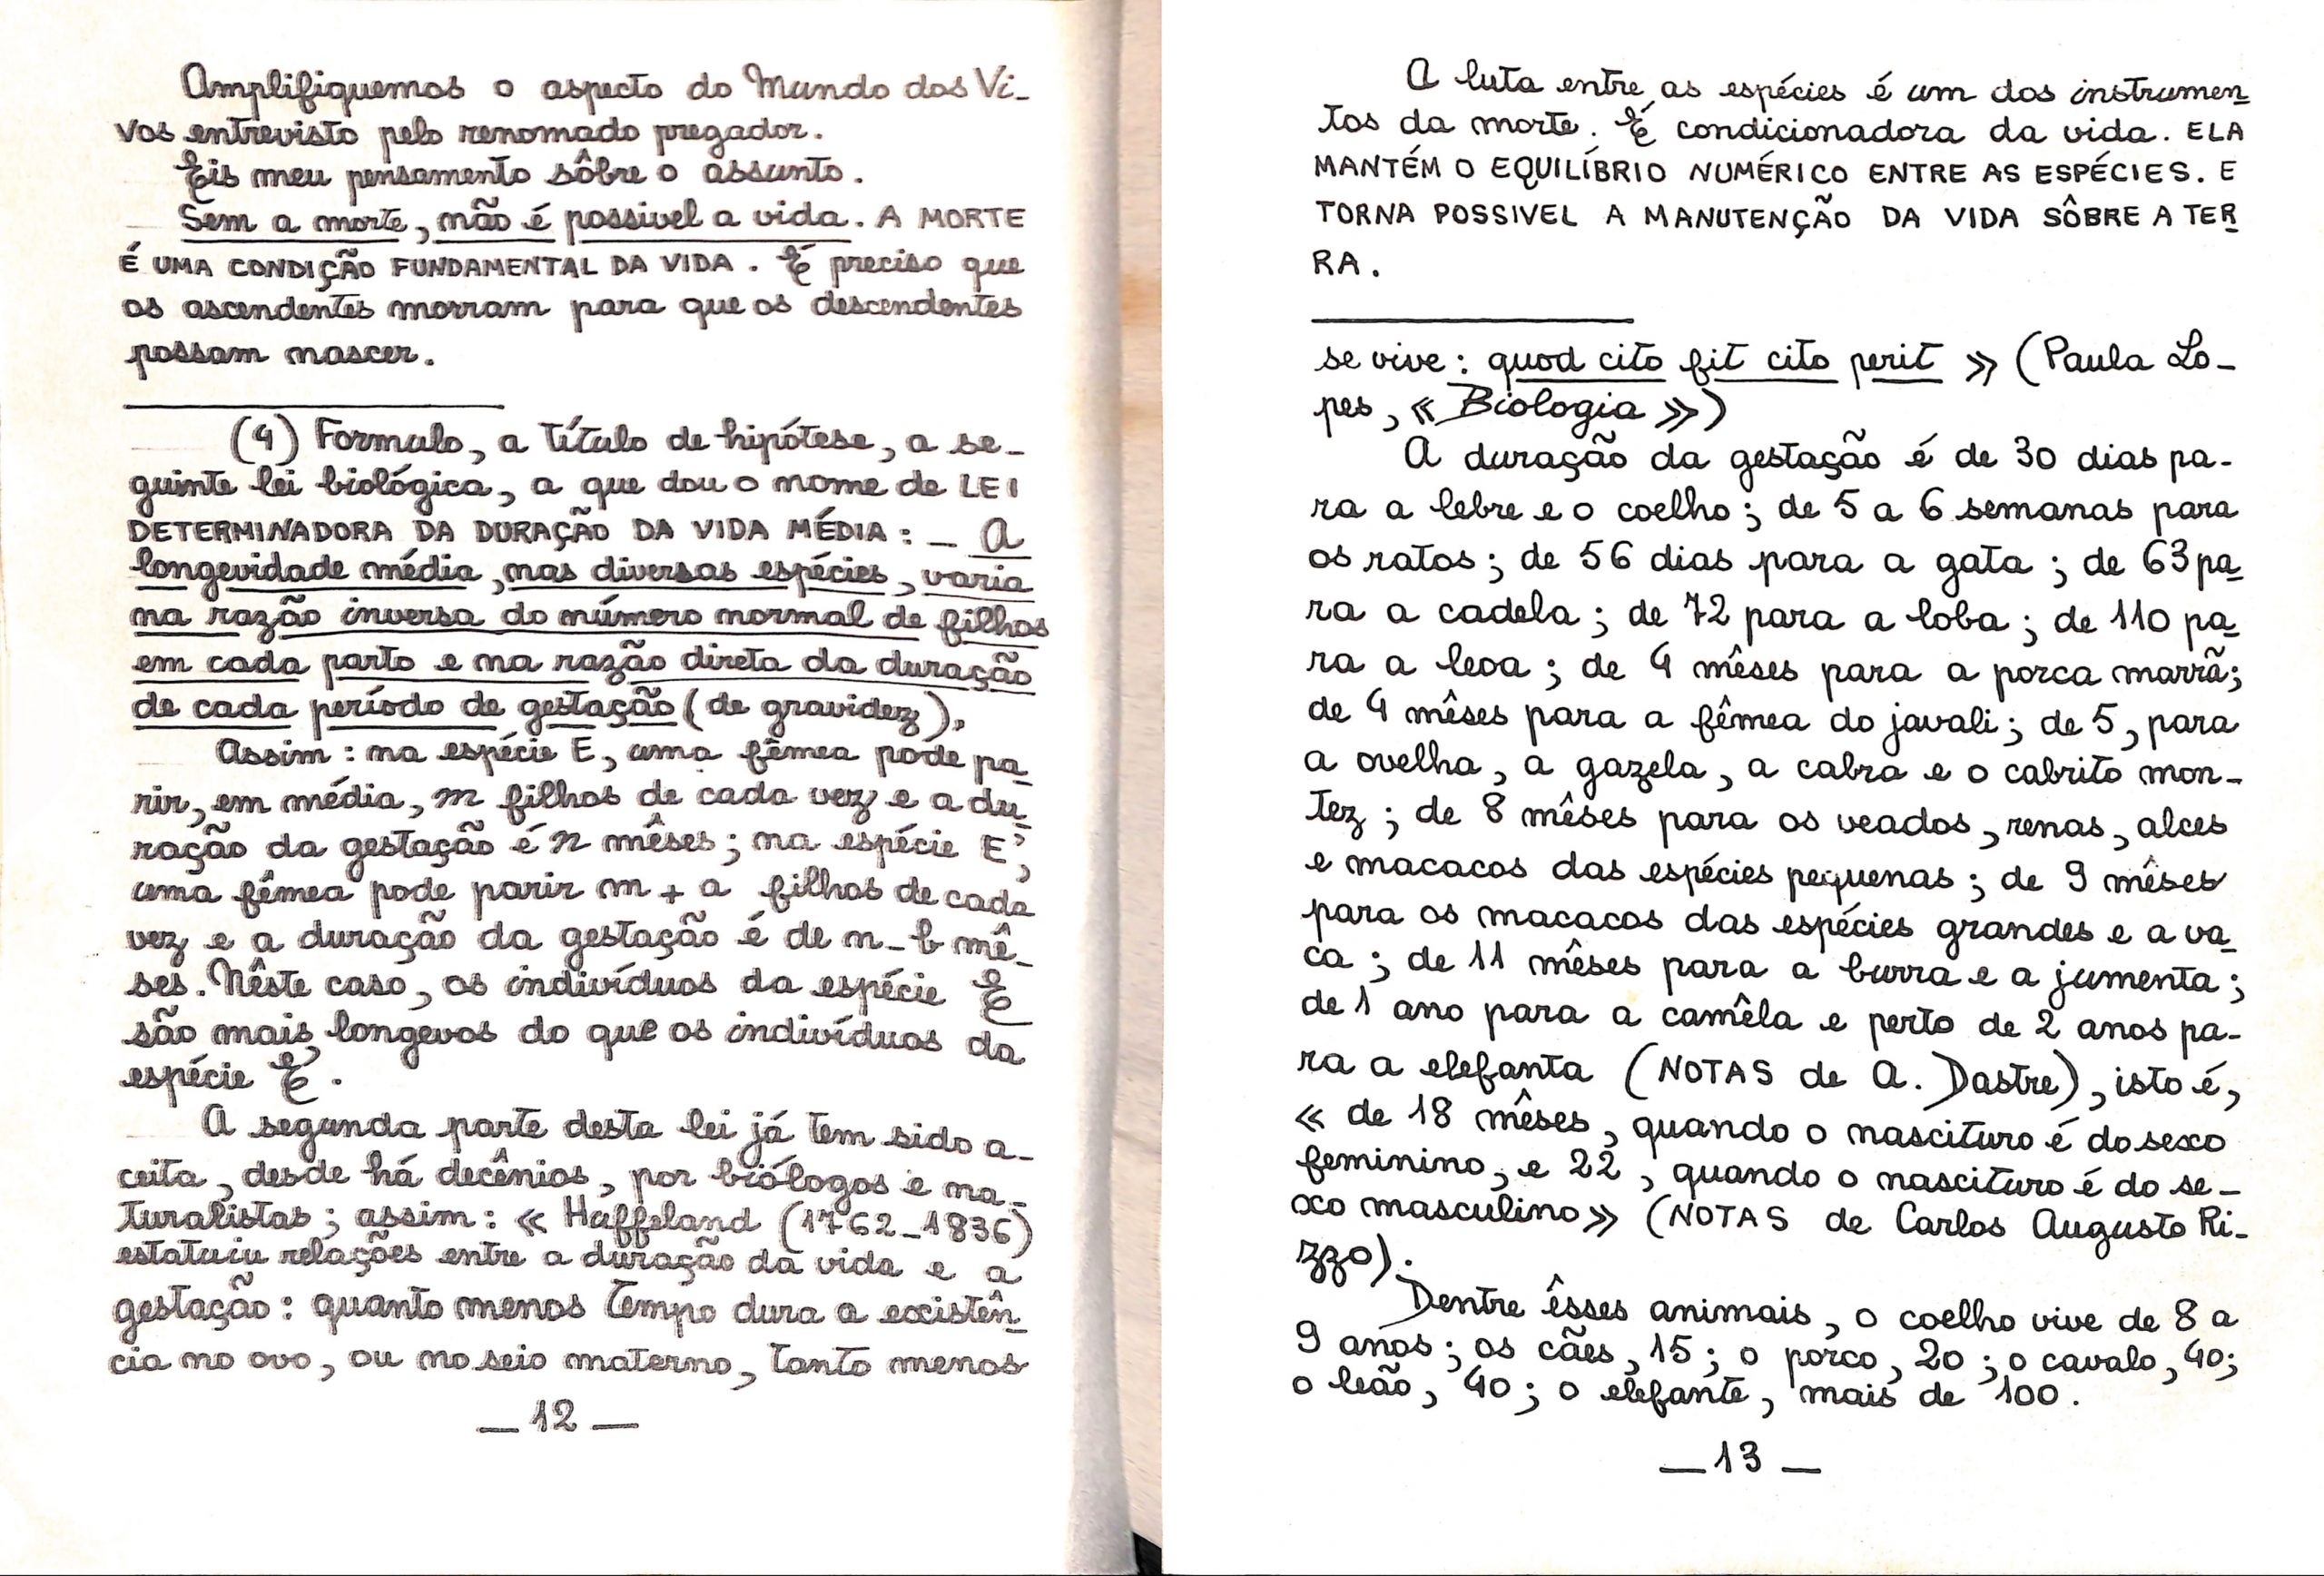 Amplifiquemos o aspecto do Mundo dos Vi_
vos entrevisto pelo renomado pregador.
Eis meu pensamento sôbre o assunto.
Sem a morte, não é possivel a vida. A MORTE
É UMA CONDIÇÃO FUNDAMENTAL DA VIDA. É preciso que
os ascendentes morram para que os descendentes
possam nascer.
(4) Formulo, a título de hipótese, a se_
guinte lei biológica, a que dou o nome de LEI
DETERMINADORA DA DURAÇÃO DA VIDA MÉDIA: _ A
longevidade média, nas diversas espécies, varia
na razão inversa do número normal de filhos
em cada parto e na razão direta da duração
de cada período de gestação (de gravidez).
Assim: na espécie E, uma fêmea pode pa_
rir, em média, m filhos de cada vez e a du_
ração da gestação é n mêses; na espécie E',
uma fêmea pode parir m + a filhos de cada
vez e a duração da gestação é de n_b mê_
ses. Nêste caso, os indivíduos da espécie E
são mais longevos do que os indivíduos da
espécie E'.
A segunda parte desta lei já tem sido a_
ceita, desde há decênios, por biólogos e na_
turalistas; assim: « Huffeland (1762_1836)
estatuiu relações entre a duração da vida e a
gestação: quanto menos tempo dura a existên_
cia no ovo, ou no seio materno, tanto menos
_ 12 _
A luta entre as espécies é um dos instrumen_
tos da morte. É condicionadora da vida. ELA
MANTÉM O EQUILÍBRIO NUMÉRICO ENTRE AS ESPÉCIES. E
TORNA POSSIVEL A MANUTENÇÃO DA VIDA SÔBRE A TER_
RA.
se vive: quod cito fit cito perit » (Paula Lo_
pes, « Biologia »)
A duração da gestação é de 30 dias pa-
ra a lebre e o coelho; de 5 a 6 semanas para
os ratos; de 56 dias para a gata; de 63 pa_
ra a cadela; de 72 para a loba; de 110 pa_
ra a leoa; de 4 mêses para a porca marrã;
de 4 mêses para a fêmea do javali; de 5, para
a ovelha, a gazela, a cabra e o cabrito mon_
tez; de 8 mêses para os veados, renas, alces
e macacos das espécies pequenas; de 9 mêses
para os macacos das espécies grandes e a va_
ca; de 11 mêses para a burra e a jumenta;
de 1 ano para a camêla e perto de 2 anos pa-
ra a elefanta (NOTAS de A. Dastre), isto é,
« de 18 mêses, quando o nascituro é do sexo
feminino, e 22, quando o nascituro é do se_
xo masculino » (NOTAS de Carlos Augusto Ri_
zzo).
Dentre êsses animais, o coelho vive de 8 a
9 anos; os cães, 15; o porco, 20; o cavalo, 40;
o leão, 40; o elefante, mais de 100.
_ 13 _